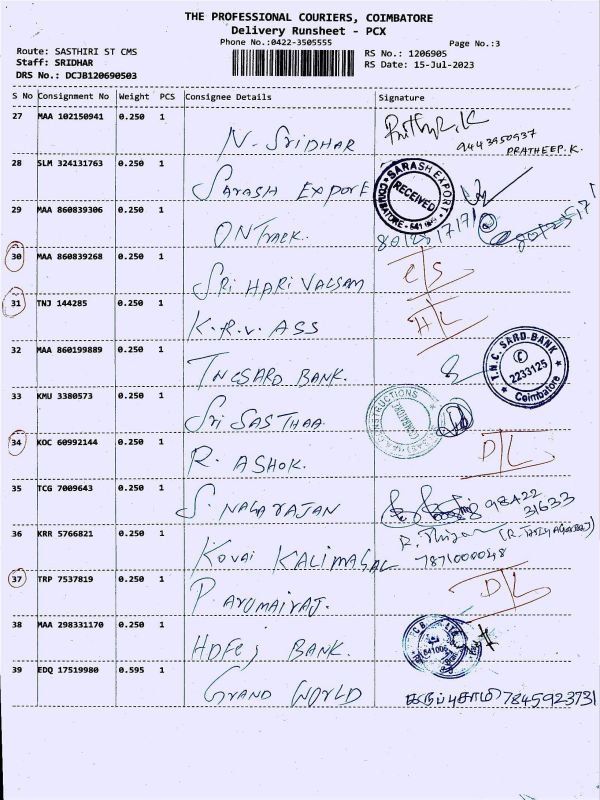 THE PROFESSIONAL COURIERS, COIMBATORE
Delivery Runsheet - PCX
Phone No.:0422-3505555
Page No.:3
Route: SASTHIRI ST CMS
Staff: SRIDHAR
DRS No.: DCJB120690503
RS No.: 1206905
RS Date: 15-Jul-2023
S No Consignment No Weight PCS Consignee Details Signature
27 MAA 102150941 0.250 1 N. SRIDHAR
9443950937
PRATHEEP.K.
28 SLM 324131763 0.250 1 Sarash Export
SARASH EXPORT
RECEIVED
COIMBATORE
29 MAA 860839306 0.250 1 ONTrack
30 MAA 860839268 0.250 1 SRI HARI VALSAM
31 TNJ 144285 0.250 1 K.R.V. ASS
32 MAA 860199889 0.250 1 TNCSARD BANK.
T.N.C. SARD-BANK
2233125
Coimbatore
33 KMU 3380573 0.250 1 Sri SASTHAA
34 KOC 60992144 0.250 1 R. ASHOK. D/L
35 TCG 7009643 0.250 1 S. NAGARAJAN
98422
31633
36 KRR 5766821 0.250 1 KOVAI KALIMAGAL
37 TRP 7537819 0.250 1 P. Arumairaj. D/L
38 MAA 298331170 0.250 1 HDFC BANK.
39 EDQ 17519980 0.595 1 GRAND WORLD கருப்புசாமி 7845923731